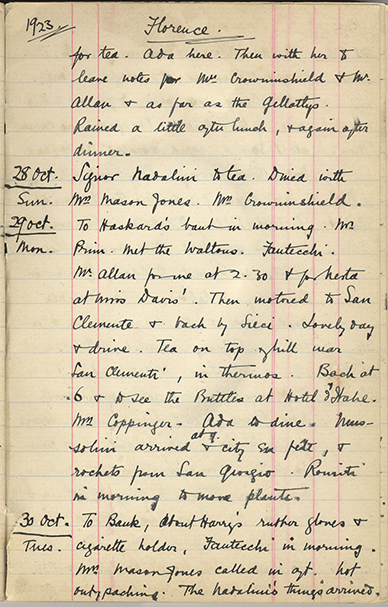 1923. Florence.
for tea. Ada here. Then with her to
leave notes for Mrs Crowninshield & Mr
Allan & as far as the Gellatlys.
Rained a little after lunch, & again after
dinner.
28 Oct. Signor Nadalini to tea. Dined with
Sun. Mrs Mason Jones. Mrs Crowninshield.
29 Oct. To Haskard's bank in morning. Mrs
Mon. Prim. Met the Waltons. Fautecchi.
Mr Allan for me at 2.30 & for Nesta
at Miss Davis'. Then motored to San
Clemente & back by Sieci. Lovely day
& drive. Tea on top of hill near
San Clementi, in thermos. Back at
6 & to see the Buttles at Hotel d'Italie.
Mrs Coppinger. Ada to dine. Mus-
solini arrived at 7. & city en fête, &
rockets from San Giorgio. Romiti
in morning to move plants.
30 Oct. To Bank, about Harry's rubber gloves &
Tues. cigarette holder, Fautecchi in morning.
Mrs Mason Jones called in aft. Not
out, packing. The Nadalini's things arrived.